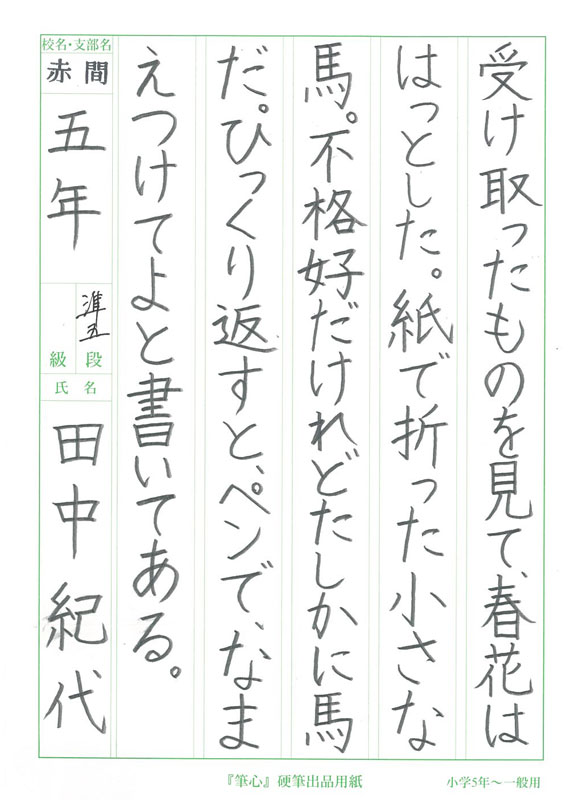 受け取ったものを見て、春花は
はっとした。紙で折った小さな
馬。不格好だけれどたしかに馬
だ。ひっくり返すと、ペンで、なま
えつけてよと書いてある。
校名・支部名
赤間
五年
準五
級 段
氏名
田中紀代
『筆心』硬筆出品用紙
小学5年〜一般用